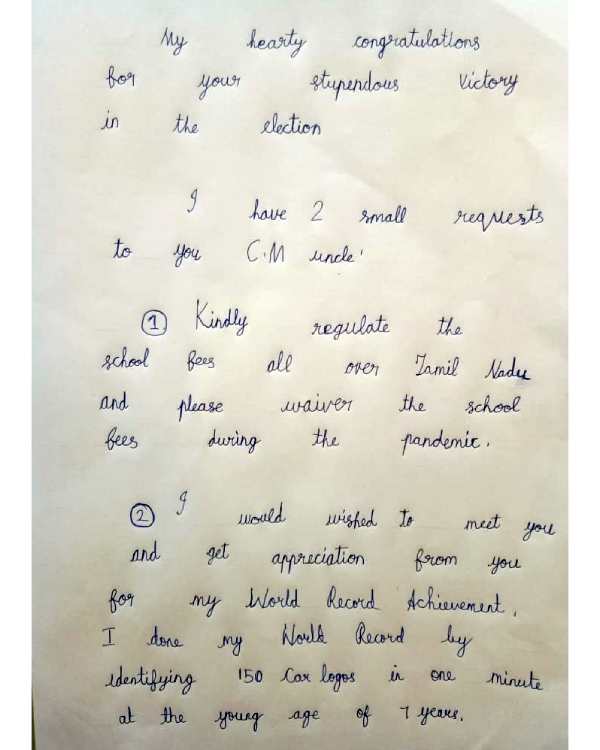 My hearty congratulations
for your stupendous victory
in the election
I have 2 small requests
to you C.M uncle'
① Kindly regulate the
school fees all over Tamil Nadu
and please waiver the school
fees during the pandemic.
② I would wished to meet you
and get appreciation from you
for my World Record Achievement.
I done my World Record by
identifying 150 Car logos in one minute
at the young age of 7 years.